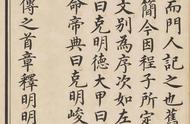 而門人記之也舊
簡今因程子所定
文別為序次如左
曰克明德大甲曰
命帝典曰克明峻
傳之首章釋明明